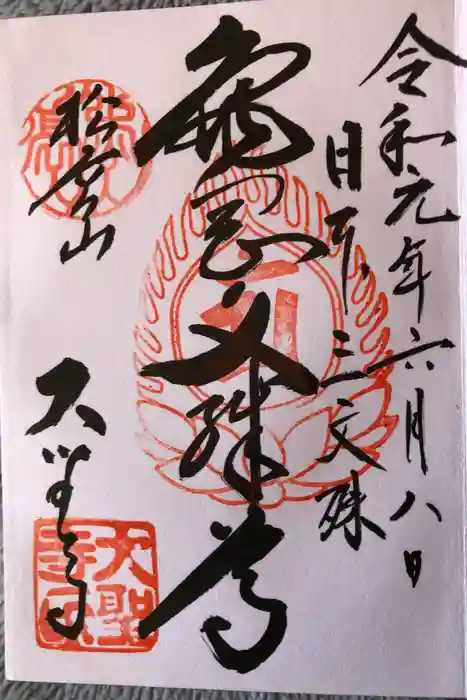 令和元年六月八日
日本三文殊
亀岡文殊尊
松高山
大聖寺
大聖
寺印